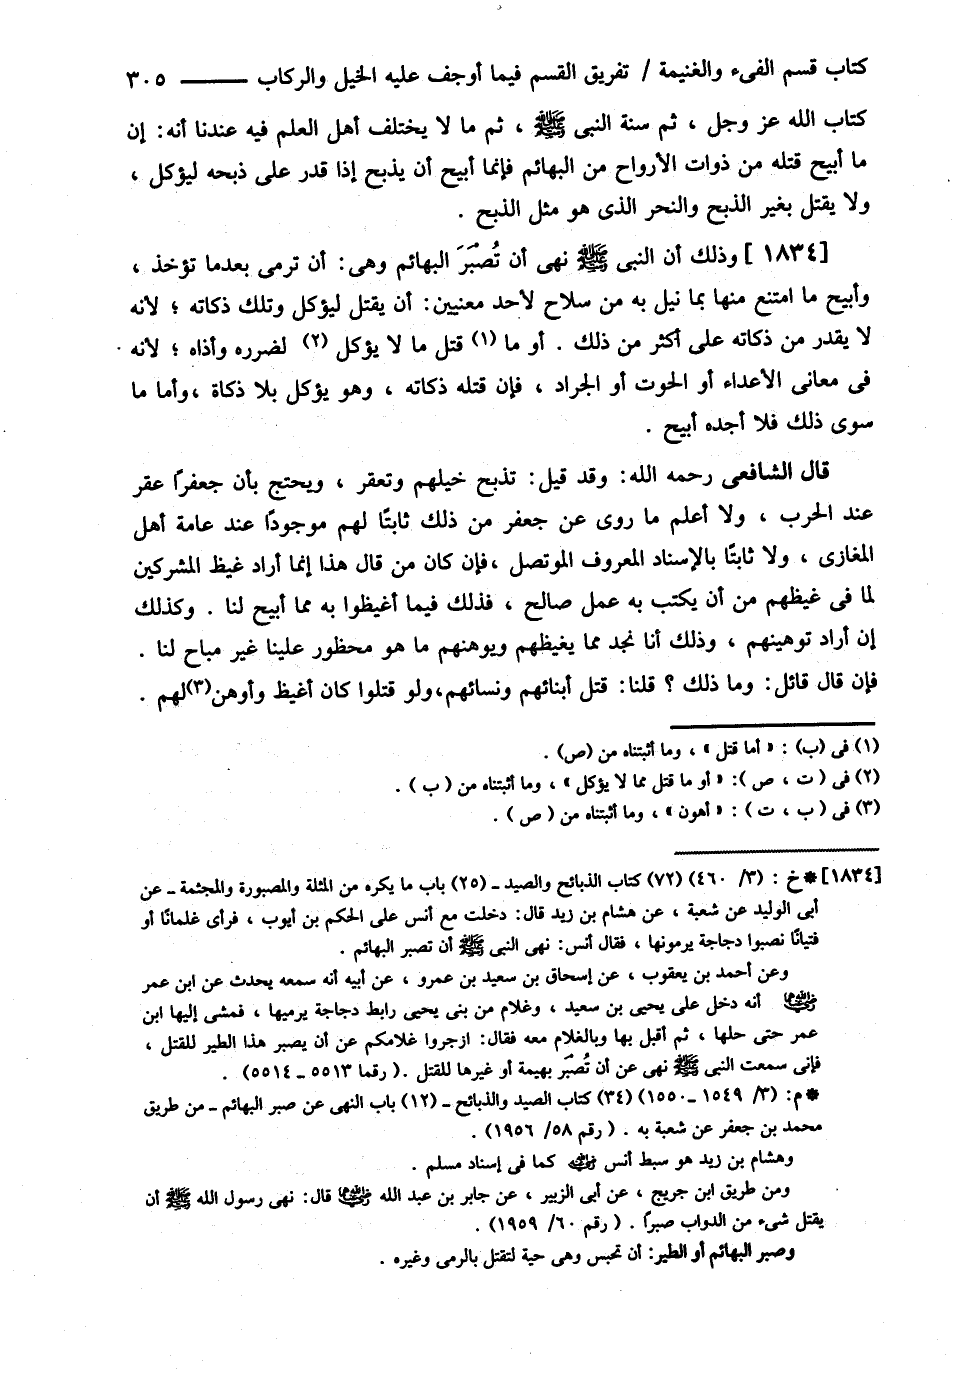 كتاب قسم الفىء والغنيمة / تفريق القسم فيما أوجف عليه الخيل والركاب ــــــــ ٣٠٥
كتاب الله عز وجل ، ثم سنة النبى ﷺ ، ثم ما لا يختلف أهل العلم فيه عندنا أنه: إن
ما أبيح قتله من ذوات الأرواح من البهائم فإنما أبيح أن يذبح إذا قدر على ذبحه ليؤكل ،
ولا يقتل بغير الذبح والنحر الذى هو مثل الذبح .
[١٨٣٤ ] وذلك أن النبى ﷺ نهى أن تُصْبَرَ البهائم وهى: أن ترمى بعدما تؤخذ ،
وأبيح ما امتنع منها بما نيل به من سلاح لأحد معنيين: أن يقتل ليؤكل وتلك ذكاته ؛ لأنه
لا يقدر من ذكاته على أكثر من ذلك . أو ما (١) قتل ما لا يؤكل (٢) لضرره وأذاه ؛ لأنه
فى معانى الأعداء أو الحوت أو الجراد ، فإن قتله ذكاته ، وهو يؤكل بلا ذكاة ،وأما ما
سوى ذلك فلا أجده أبيح .
قال الشافعى رحمه الله: وقد قيل: تذبح خيلهم وتعقر ، ويحتج بأن جعفرًا عقر
عند الحرب ، ولا أعلم ما روى عن جعفر من ذلك ثابتًا لهم موجودًا عند عامة أهل
المغازى ، ولا ثابتًا بالإسناد المعروف الموتصل ،فإن كان من قال هذا إنما أراد غيظ المشركين
لما فى غيظهم من أن يكتب به عمل صالح ، فذلك فيما أغيظوا به مما أبيح لنا . وكذلك
إن أراد توهينهم ، وذلك أنا نجد مما يغيظهم ويوهنهم ما هو محظور علينا غير مباح لنا .
فإن قال قائل: وما ذلك ؟ قلنا: قتل أبنائهم ونسائهم،ولو قتلوا كان أغيظ وأوهن(٣)لهم .
(١) فى (ب) : « أما قتل » ، وما أثبتناه من (ص) .
(٢) فى ( ت ، ص ): « أو ما قتل مما لا يؤكل » ، وما أثبتناه من ( ب ) .
(٣) فى ( ب ، ت ) : « أهون » ، وما أثبتناه من ( ص ) .
[١٨٣٤] * خ : (٣/ ٤٦٠) (٧٢) كتاب الذبائح والصيد ـ (٢٥) باب ما يكره من المثلة والمصبورة والمجثمة ـ عن
أبى الوليد عن شعبة ، عن هشام بن زيد قال: دخلت مع أنس على الحكم بن أيوب ، فرأى غلمانًا أو
فتيانًا نصبوا دجاجة يرمونها ، فقال أنس: نهى النبى ﷺ أن تصبر البهائم .
وعن أحمد بن يعقوب ، عن إسحاق بن سعيد بن عمرو ، عن أبيه أنه سمعه يحدث عن ابن عمر
رضي الله عنهما أنه دخل على يحيى بن سعيد ، وغلام من بنى يحيى رابط دجاجة يرميها ، فمشى إليها ابن
عمر حتى حلها ، ثم أقبل بها وبالغلام معه فقال: ازجروا غلامكم عن أن يصبر هذا الطير للقتل ،
فإنى سمعت النبى ﷺ نهى عن أن تُصْبَر بهيمة أو غيرها للقتل .( رقما ٥٥١٣ ـ ٥٥١٤) .
* م: (٣/ ١٥٤٩ ـ ١٥٥٠) (٣٤) كتاب الصيد والذبائح ـ (١٢) باب النهى عن صبر البهائم ـ من طريق
محمد بن جعفر عن شعبة به . ( رقم ٥٨/ ١٩٥٦) .
وهشام بن زيد هو سبط أنس رضي الله عنه كما فى إسناد مسلم .
ومن طريق ابن جريج ، عن أبى الزبير ، عن جابر بن عبد الله رضي الله عنهما قال: نهى رسول الله ﷺ أن
يقتل شىء من الدواب صبرًا . ( رقم ٦٠/ ١٩٥٩) .
وصبر البهائم أو الطير: أن تحبس وهى حية لتقتل بالرمى وغيره .